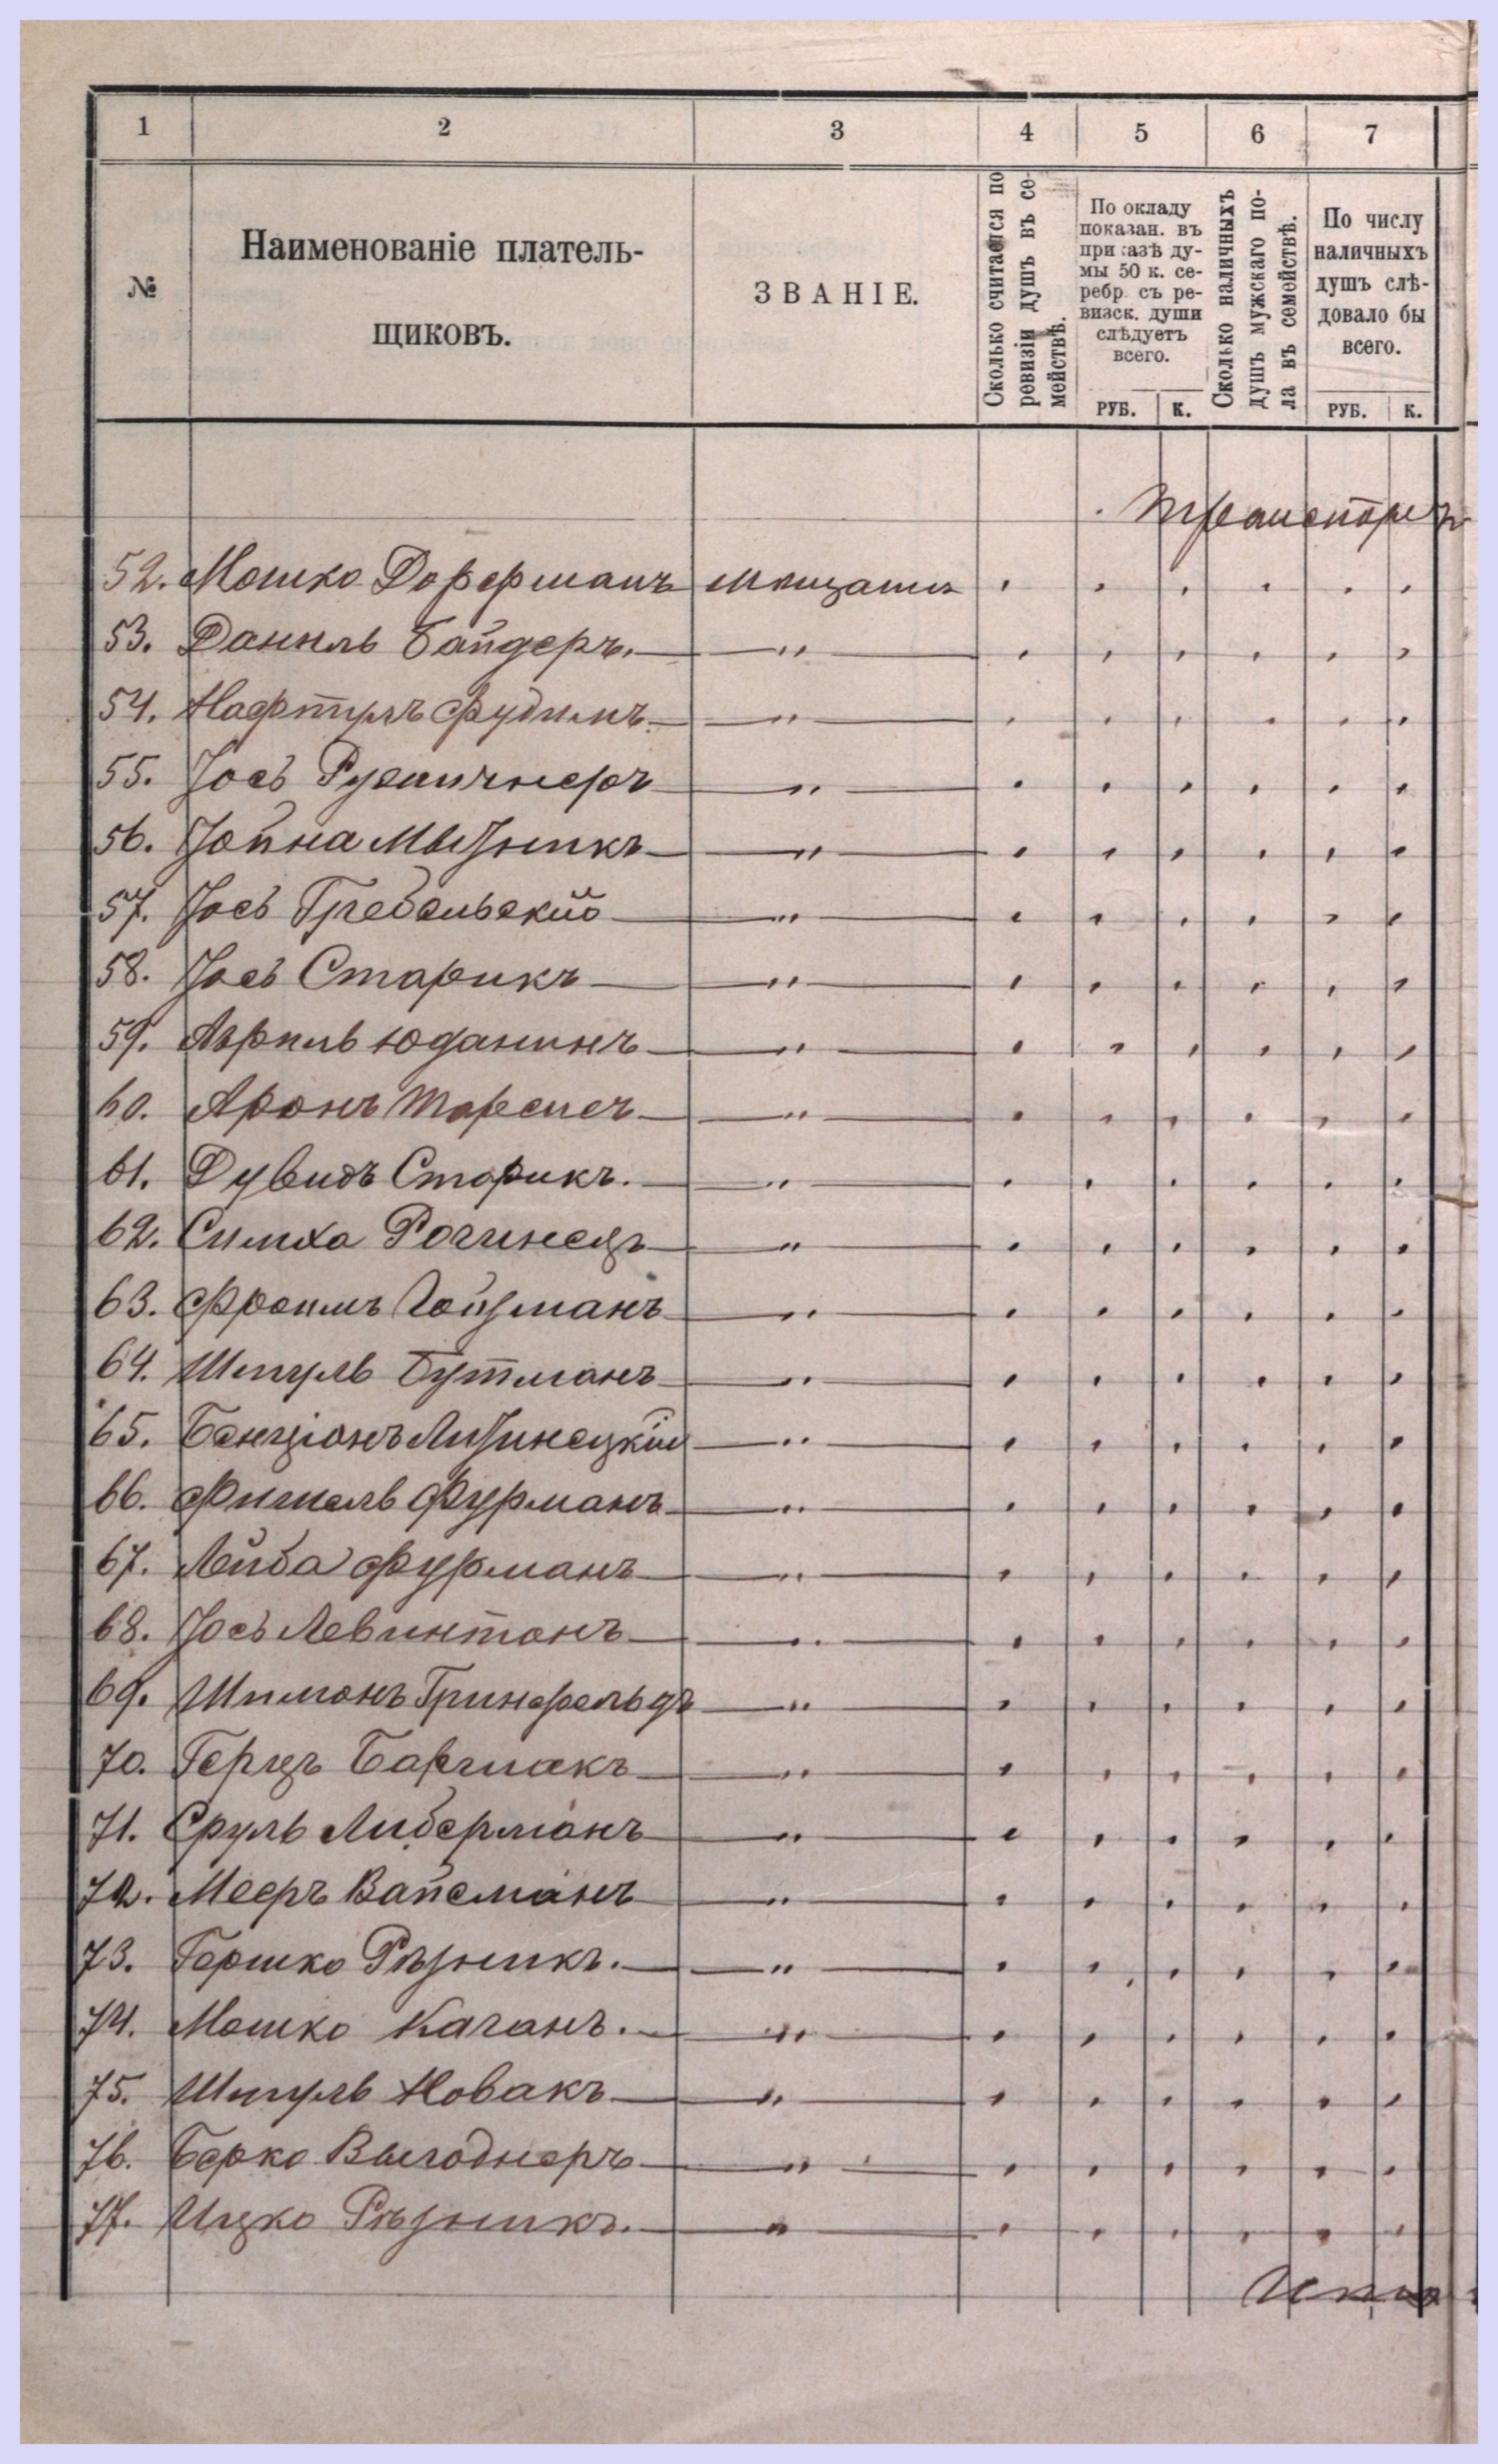 1 2 3 4 5 6 7
№
Наименованіе платель-
щиковъ.
ЗВАНІЕ.
Сколько считается по
ревизіи душъ въ се-
мействѣ.
По окладу
показан. въ
приказѣ ду-
мы 50 к. се-
ребр. съ ре-
визск. души
слѣдуетъ
всего.
РУБ. К.
Сколько наличныхъ
душъ мужскаго по-
ла въ семействѣ.
По числу
наличныхъ
душъ слѣ-
довало бы
всего.
РУБ. К.
Транспортъ
52. Мошко Дорферманъ мѣщанинъ
53. Даниль Байдеръ. "
54. Нафтулъ Фудимъ "
55. Іось "
56. Іойна "
57. Іось Гребельскій "
58. Іось Старикъ "
59. Юданинъ "
60. Аронъ "
61. Дувидъ Старикъ. "
62. Симха Рогинецъ "
63. Фроимъ Гойзманъ "
64. Шмуль Бутманъ "
65. Бенціонъ Лизинецкій "
66. Фишель Фурманъ "
67. Лейба Фурманъ "
68. Іось Левинтонъ "
69. Шимонъ Гринфельдъ "
70. Герцъ Барчмакъ "
71. Сруль Либерманъ "
72. Мееръ Вайсманъ "
73. Гершко Рѣзникъ. "
74. Мошко Каганъ. "
75. Шмуль Новакъ "
76. Берко Выгоднеръ "
77. Ицко Рѣзникъ. "